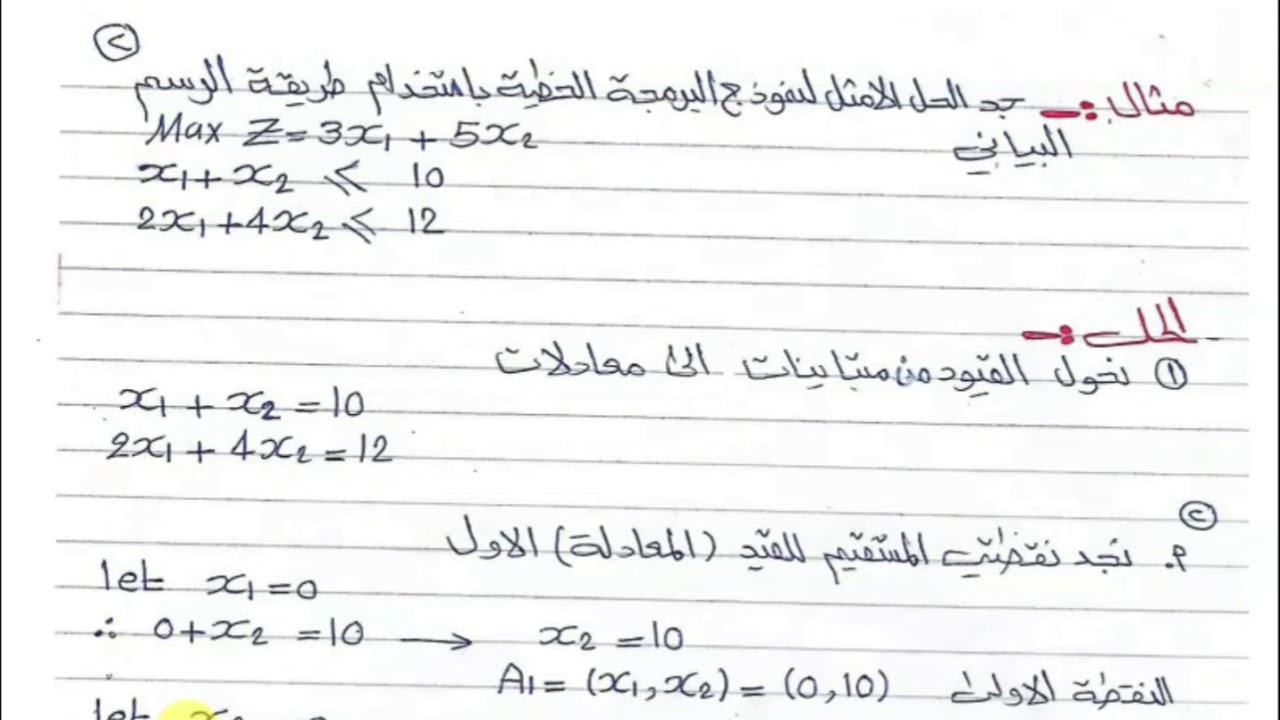 ٢
مثال :- جد الحل الامثل لنموذج البرمجة الخطية باستخدام طريقة الرسم
البياني
Max Z = 3x₁ + 5x₂
x₁ + x₂ ⩽ 10
2x₁ + 4x₂ ⩽ 12
الحل :-
① نحول القيود من متباينات الى معادلات
x₁ + x₂ = 10
2x₁ + 4x₂ = 12
②
م. نجد نقطتي المستقيم للقيد (المعادلة) الاول
let x₁ = 0
∴ 0 + x₂ = 10 → x₂ = 10
النقطة الاولى A₁ = (x₁, x₂) = (0, 10)
let